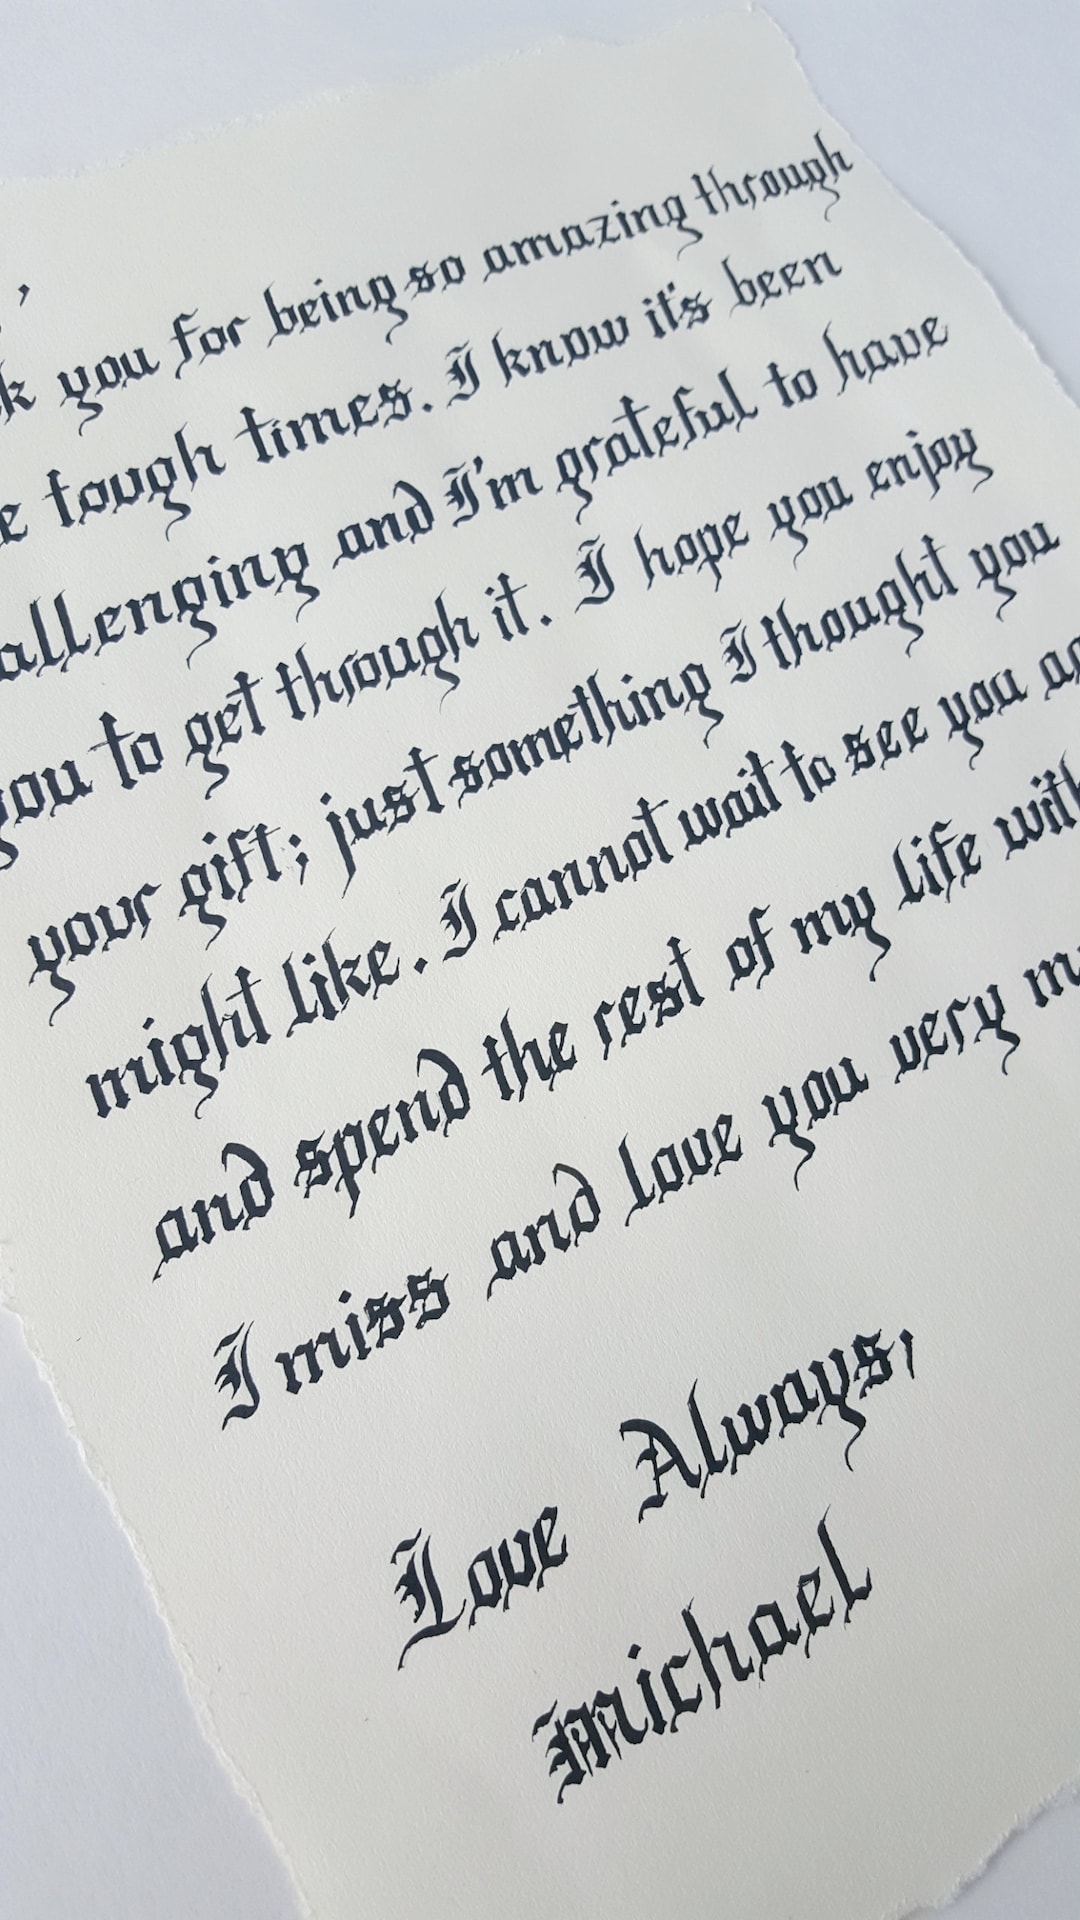 ,
k you for being so amazing through
e tough times. I know it's been
allenging and I'm grateful to have
you to get through it. I hope you enjoy
your gift; just something I thought you
might like. I cannot wait to see you
and spend the rest of my life with
I miss and love you very
Love Always,
Michael